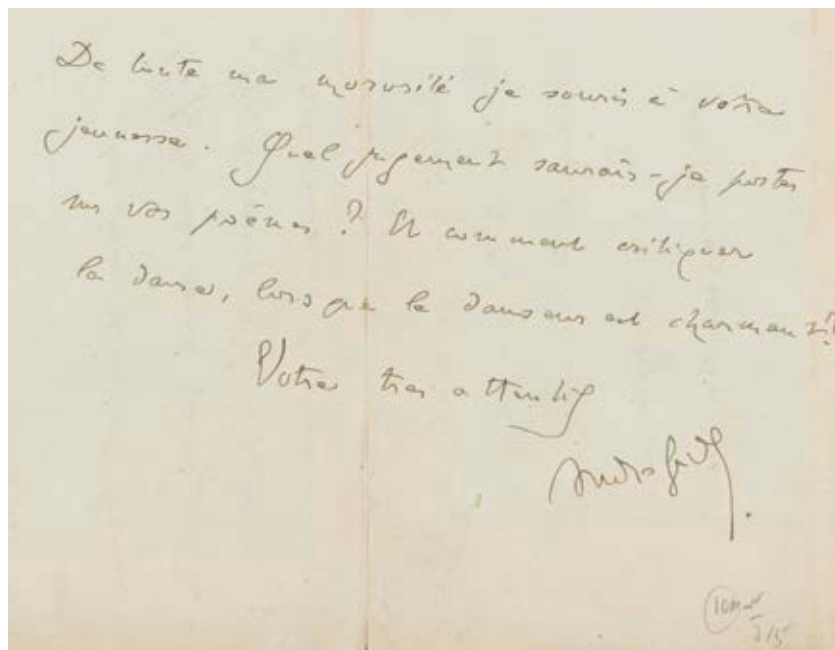 De toute ma morosité je souris à votre
jeunesse. Quel jugement saurais-je porter
sur vos poèmes ? Et comment critiquer
la danse, lorsque le danseur est charmant ?!
Votre très attentif
André Gide.